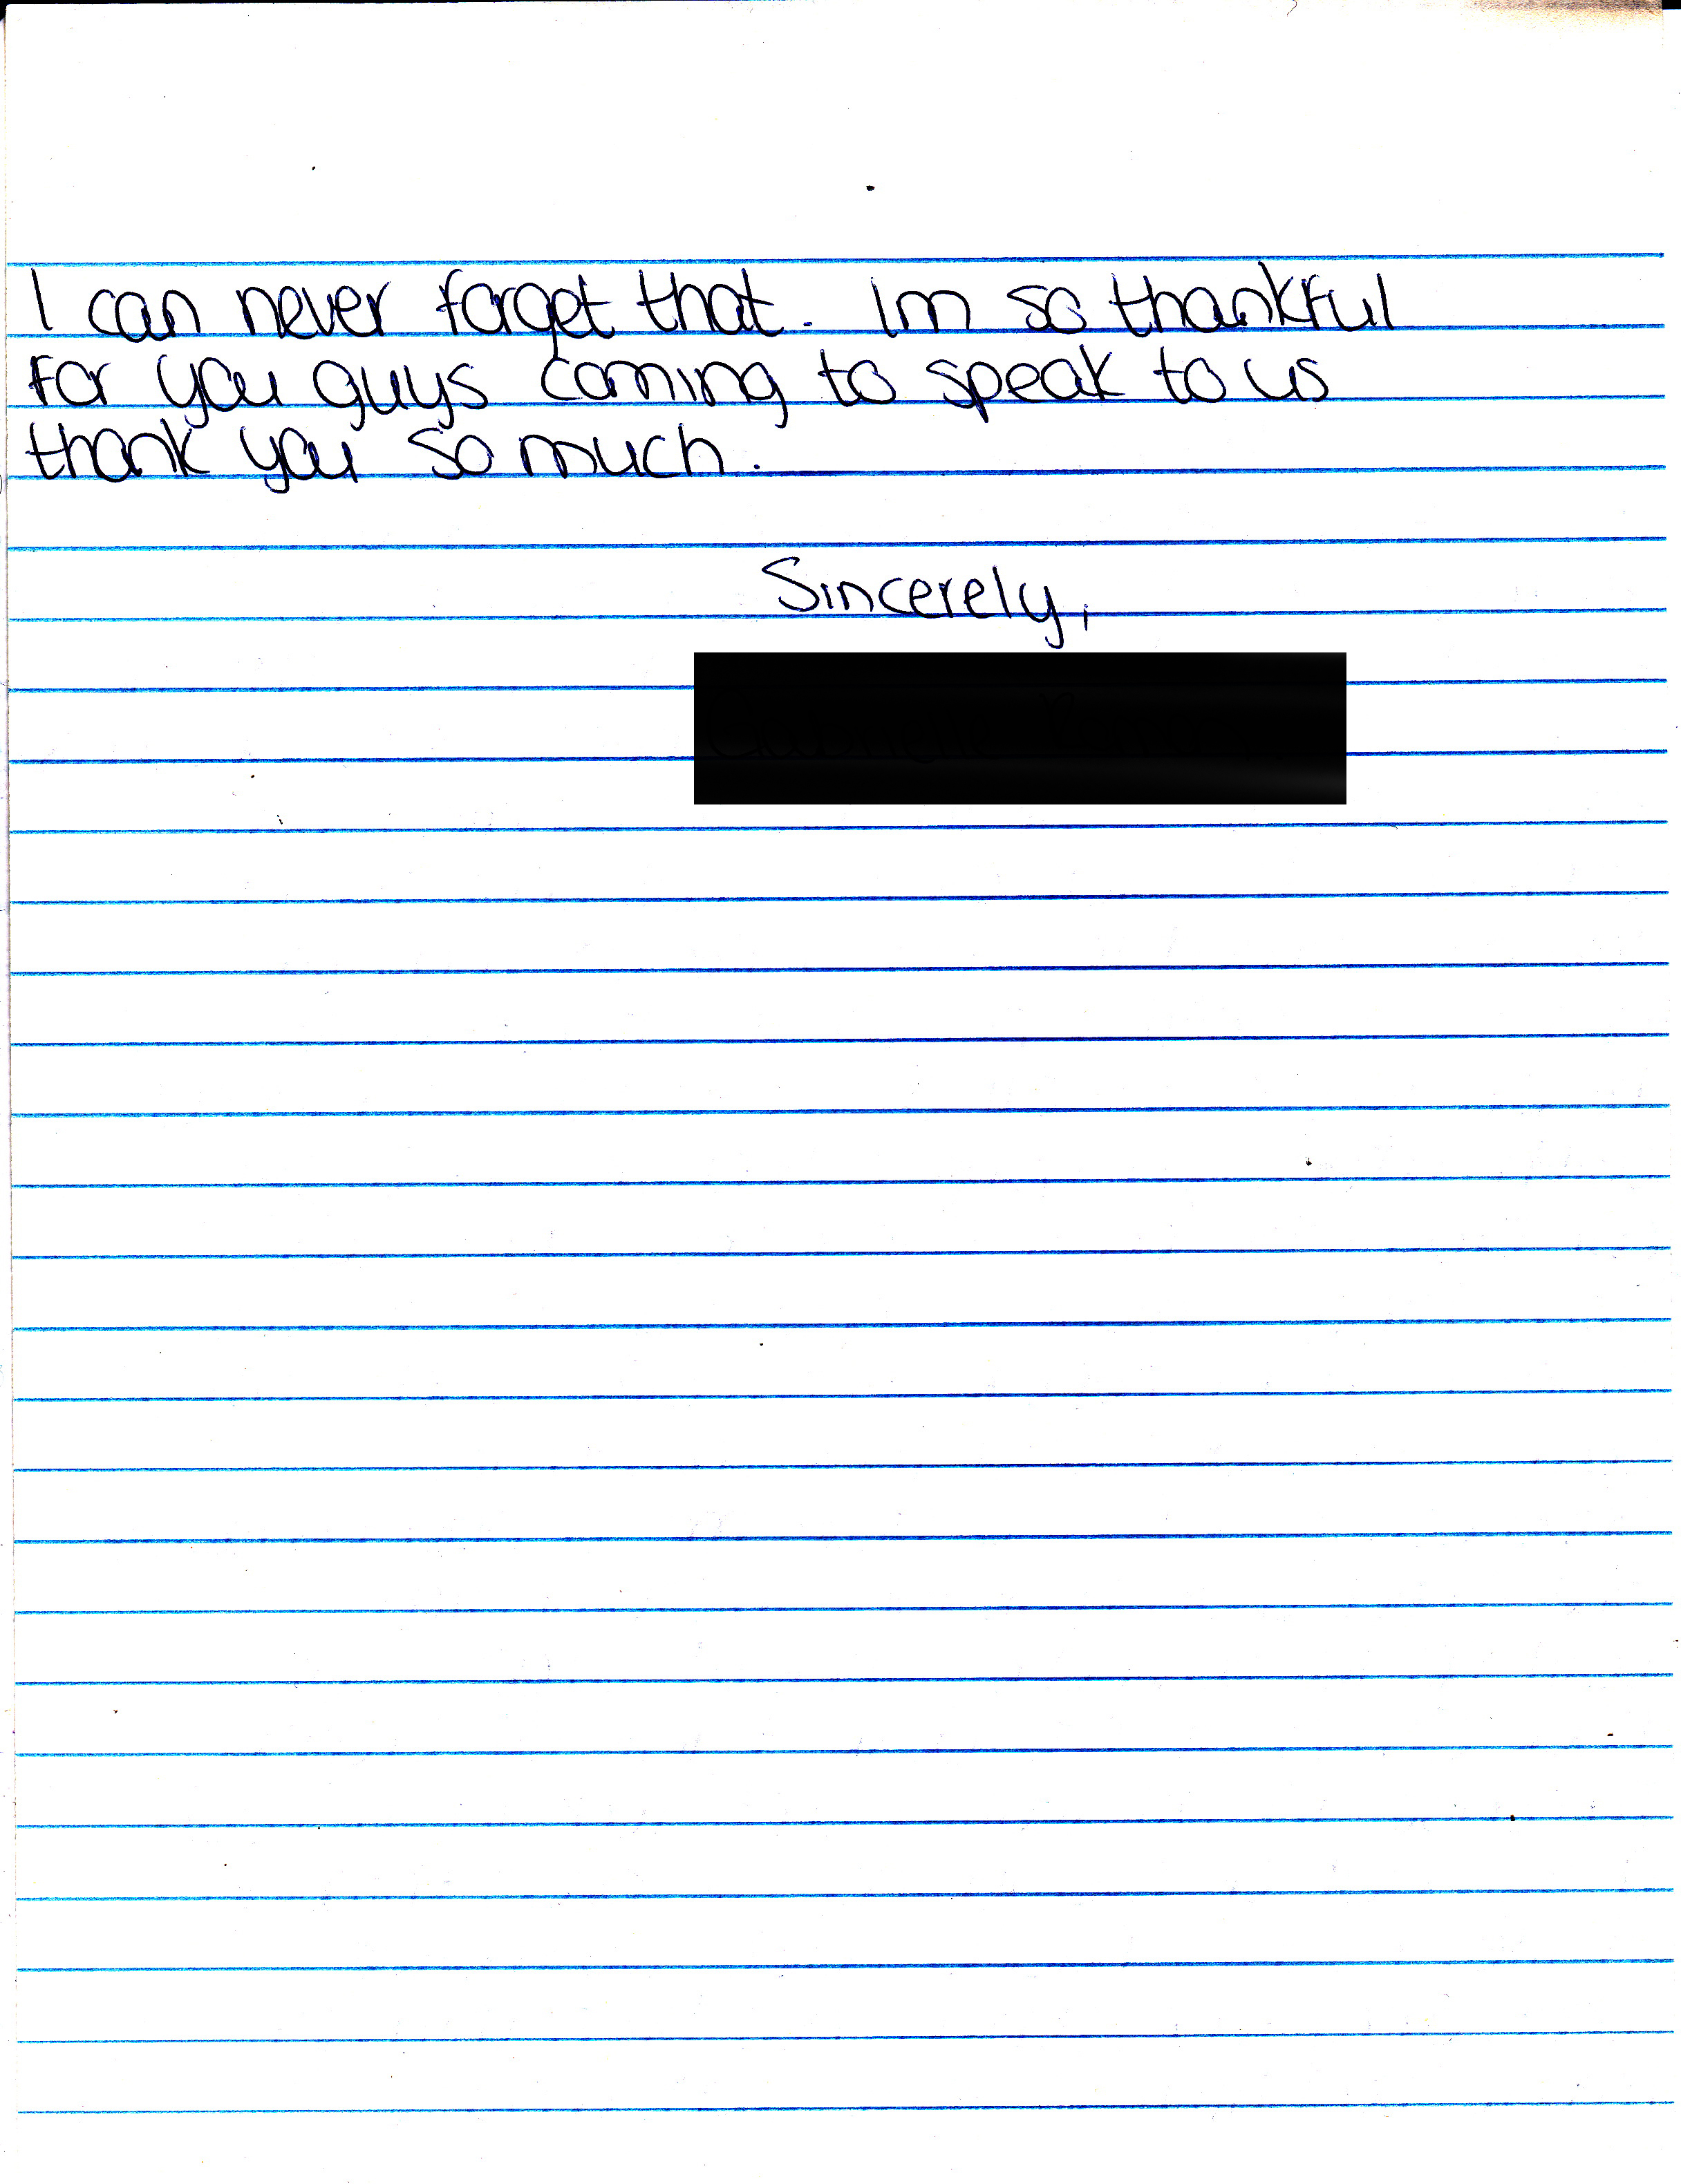 I can never forget that. Im so thankful
for you guys coming to speak to us
thank you so much.
Sincerely,